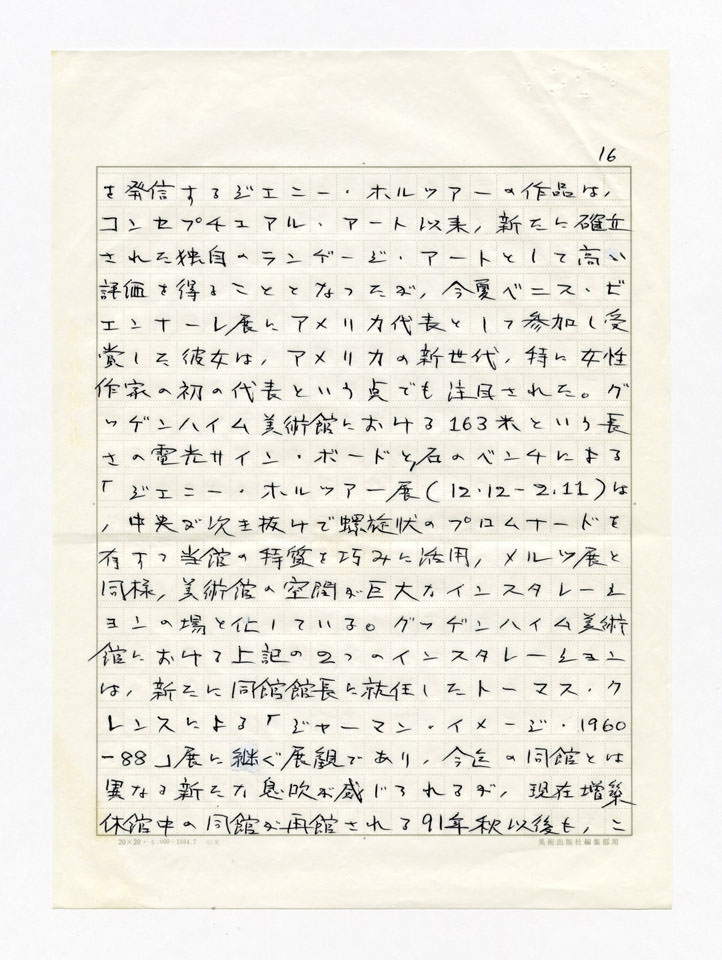 16
を発信するジェニー・ホルツァーの作品は,
コンセプチュアル・アート以来,新たに確立
された独自のランゲージ・アートとして高い
評価を得ることとなったが,今夏ベニス・ビ
エンナーレ展にアメリカ代表として参加し受
賞した彼女は,アメリカの新世代,特に女性
作家の初の代表という点でも注目された。グ
ッゲンハイム美術館における163米という長
さの電光サイン・ボードと,石のベンチによる
「ジェニー・ホルツァー展(12.12-2.11)は
,中央が吹き抜けで螺旋状のプロムナードを
有する当館の特質を巧みに活用,メルツ展と
同様,美術館の空間が巨大なインスタレーシ
ョンの場と化している。グッゲンハイム美術
館における上記の2つのインスタレーション
は,新たに同館館長に就任したトーマス・ク
レンスによる「ジャーマン・イメージ・1960
-88」展に継ぐ展観であり,今迄の同館とは
異なる新たな息吹が感じられるが,現在増築
休館中の同館が再館される91年秋以後も,こ
20×20
1984.7
美術出版社編集部用